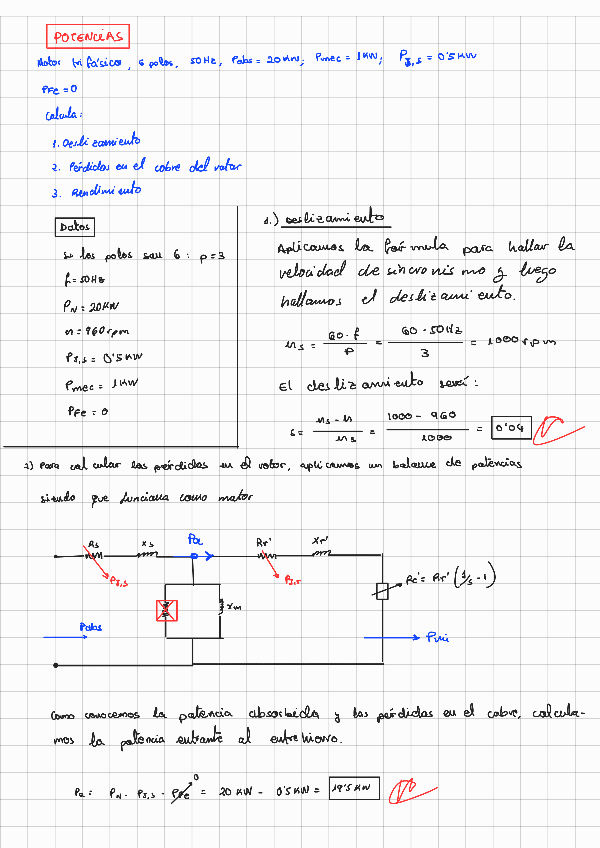 POTENCIAS
Motor trifásico, 6 polos, 50Hz, Pabs = 20KW; Pmec = 1KW; PJ,s = 0'5KW
PFe = 0
Calcula:
1. Deslizamiento
2. Pérdidas en el cobre del rotor
3. Rendimiento
Datos
Si los polos son 6 : p=3
f = 50Hz
PN = 20KW
n = 960rpm
PJ,s = 0'5KW
Pmec = 1KW
PFe = 0
1.) Deslizamiento
Aplicamos la fórmula para hallar la
velocidad de sincronismo y luego
hallamos el deslizamiento.
ns = 60·f / P = 60·50Hz / 3 = 1000rpm
El deslizamiento será:
s = ns - n / ns = 1000 - 960 / 1000 = 0'04
2) Para calcular las pérdidas en el rotor, aplicamos un balance de potencias
siendo que funciona como motor
Rs Xs Pa Rr' Xr'
PJ,s PJ,r Rc' = Rr' (1/s - 1)
Xm
Pabs Pmi
Como conocemos la potencia absorbida y las pérdidas en el cobre, calcula-
mos la potencia entrante al entrehierro.
Pa = PN - PJ,s - PFe 0 = 20KW - 0'5KW = 19'5KW